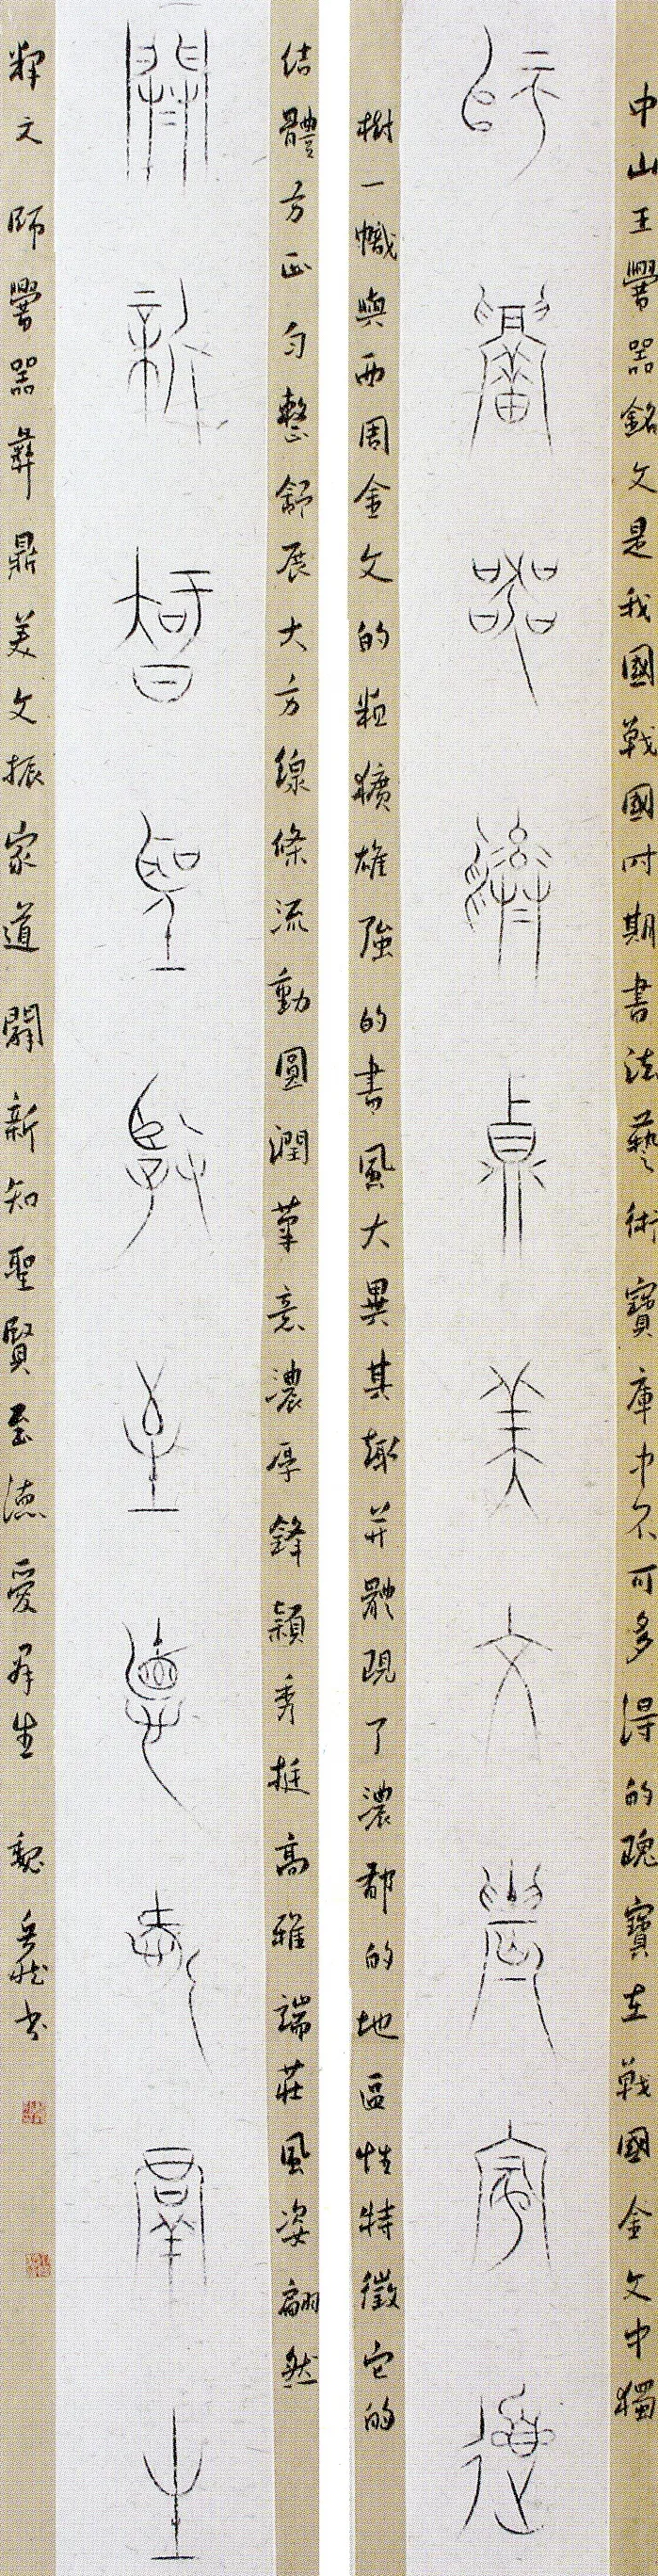 中山王𰯼器銘文是我國戰國时期書法藝術寶庫中不可多得的瑰寶在戰國金文中獨
師𰯼器彝鼎美文振家道
樹一幟與西周金文的粗獷雄強的書風大異其趣并體現了濃郁的地區性特徵它的
結體方正勻整舒展大方線條流動圓潤筆意濃厚鋒穎秀挺高雅端莊風姿翩然
闢新智聖賢至德愛群生
释文 師𰯼器彝鼎美文振家道 闢新知聖賢至德愛群生 魏 书